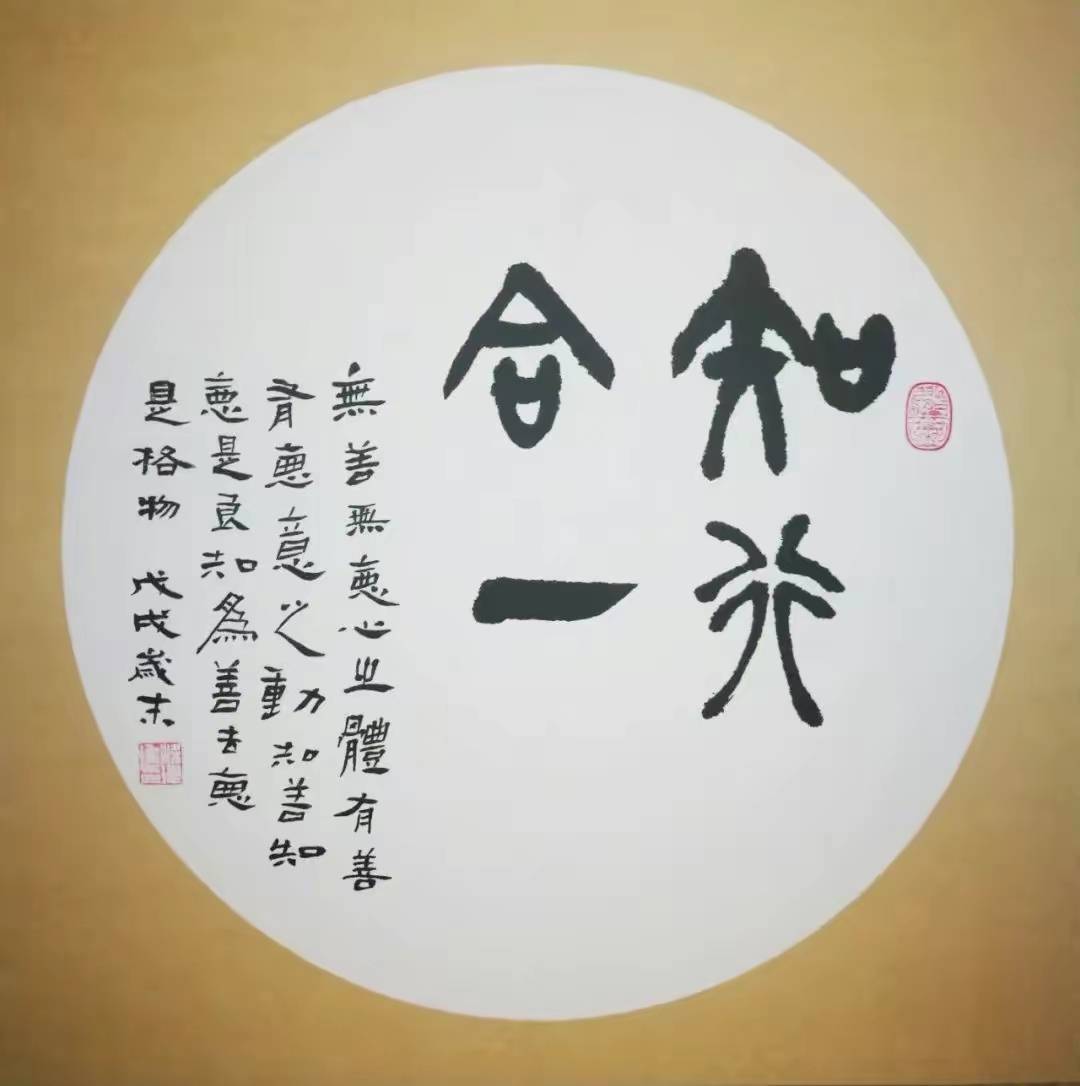 知行
合一
無善無惡心之體有善
有惡意之動知善知
惡是良知為善去惡
是格物 戊戌歲末